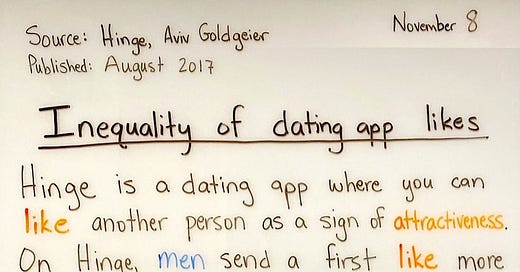 Source: Hinge, Aviv Goldgeier
November 8
Published: August 2017
Inequality of dating app likes
Hinge is a dating app where you can
like another person as a sign of attractiveness.
On Hinge, men send a first like more